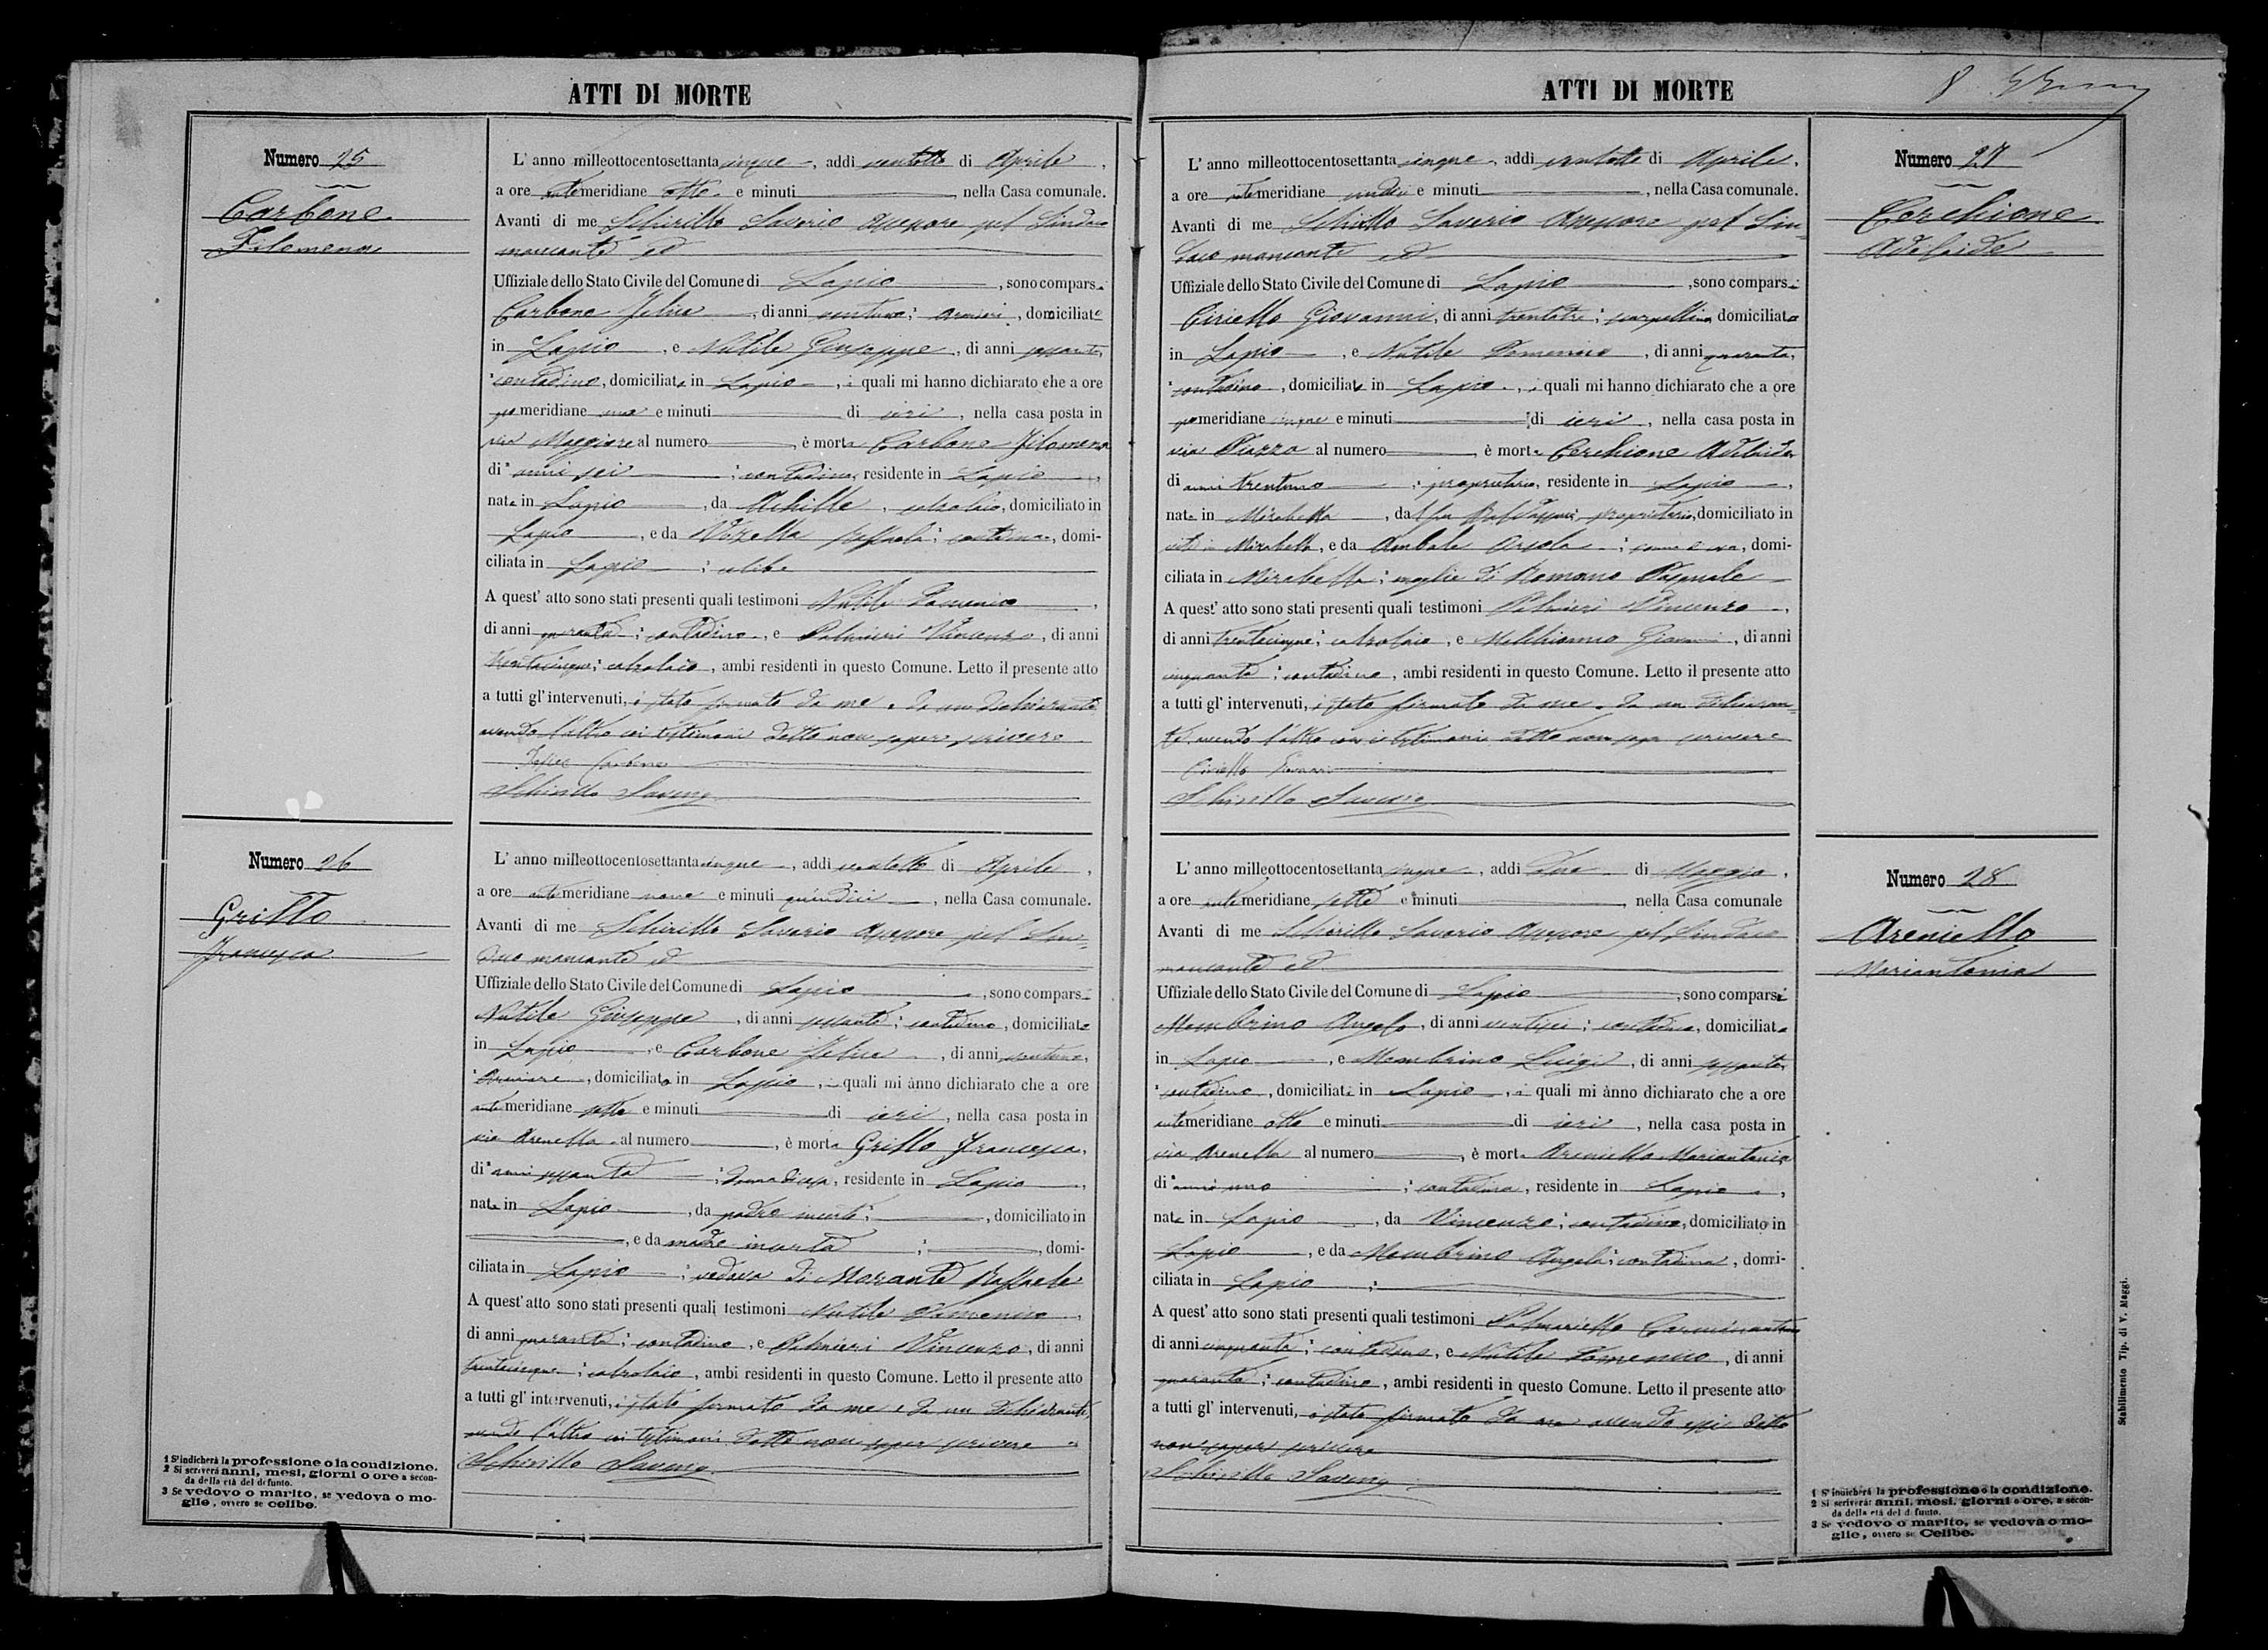 ATTI DI MORTE
Numero 25
Carbone
Filomena
L' anno milleottocentosettantacinque, addì ventotto di Aprile,
a ore antemeridiane otto e minuti , nella Casa comunale.
Avanti di me Schirillo Saverio Assessore pel Sindaco
mancante ed
Uffiziale dello Stato Civile del Comune di Lapio, sono comparsi
Carbone Felice, di anni ventuno; armiere, domiciliato
in Lapio, e Nutile Giuseppe, di anni sessanta,
contadino, domiciliato in Lapio, i quali mi hanno dichiarato che a ore
pomeridiane una e minuti di ieri, nella casa posta in
via Maggiore al numero , è morta Carbone Filomena
di anni sei ; contadina, residente in Lapio,
nata in Lapio, da Achille, calzolaio, domiciliato in
Lapio, e da Vozella Raffaela; contadina, domi-
ciliata in Lapio; celibe
A quest' atto sono stati presenti quali testimoni Nutile Domenico,
di anni quaranta; contadino, e Palmieri Vincenzo, di anni
trentacinque; calzolaio, ambi residenti in questo Comune. Letto il presente atto
a tutti gl' intervenuti, è stato firmato da me e da un dichiarante
avendo l'altro coi testimoni detto non sapere scrivere
Felice Carbone
Schirillo Saverio
Numero 26
Grillo
Francesca
L' anno milleottocentosettantacinque, addì ventotto di Aprile,
a ore antemeridiane nove e minuti quindici, nella Casa comunale.
Avanti di me Schirillo Saverio Assessore pel Sin-
daco mancante ed
Uffiziale dello Stato Civile del Comune di Lapio, sono comparsi
Nutile Giuseppe, di anni sessanta; contadino, domiciliato
in Lapio, e Carbone Felice, di anni ventuno,
armiere, domiciliato in Lapio, i quali mi ànno dichiarato che a ore
antemeridiane sette e minuti di ieri, nella casa posta in
via Arenella al numero , è morta Grillo Francesca,
di anni sessanta ; donna di casa, residente in Lapio,
nata in Lapio, da padre incerto; , domiciliato in
, e da madre incerta ; , domi-
ciliata in Lapio; vedova di Morante Raffaele
A quest' atto sono stati presenti quali testimoni Nutile Domenico,
di anni quaranta; contadino, e Palmieri Vincenzo, di anni
trentacinque; calzolaio, ambi residenti in questo Comune. Letto il presente atto
a tutti gl' intervenuti, è stato firmato da me e da un dichiarante,
avendo l'altro coi testimoni detto non saper scrivere
Schirillo Saverio
1 S' indicherà la professione o la condizione.
2 Si scriverà anni, mesi, giorni o ore a secon-
da della età del defunto.
3 Se vedovo o marito, se vedova o mo-
glie, ovvero se celibe.
ATTI DI MORTE
8
Numero 27
Cerchione
Adelaide
L' anno milleottocentosettantacinque, addì ventotto di Aprile,
a ore antemeridiane undici e minuti , nella Casa comunale.
Avanti di me Schirillo Saverio Assessore pel Sin-
daco mancante ed
Uffiziale dello Stato Civile del Comune di Lapio, sono comparsi
Ciriello Giovanni, di anni trentatre; scarpellino, domiciliato
in Lapio, e Nutile Domenico, di anni quaranta,
contadino, domiciliato in Lapio, i quali mi hanno dichiarato che a ore
pomeridiane cinque e minuti di ieri, nella casa posta in
via Piazza al numero , è morta Cerchione Adelaide
di anni trentuno ; proprietaria, residente in Lapio,
nata in Mirabella, da fu Baldassarre; proprietario, domiciliato in
vita in Mirabella, e da Ambale Orsola; , domi-
ciliata in Mirabella; moglie di Romano Pasquale
A quest' atto sono stati presenti quali testimoni Palmieri Vincenzo,
di anni trentacinque; calzolaio, e Melchionno Giovanni, di anni
cinquanta; contadino, ambi residenti in questo Comune. Letto il presente atto
a tutti gl' intervenuti, è stato firmato da me e da un dichiaran-
te, avendo l'altro con i testimoni detto non saper scrivere
Ciriello Giovanni
Schirillo Saverio
Numero 28
Areniello
Mariantonia
L' anno milleottocentosettantacinque, addì due di Maggio,
a ore antemeridiane sette e minuti , nella Casa comunale
Avanti di me Schirillo Saverio Assessore pel Sindaco
mancante ed
Uffiziale dello Stato Civile del Comune di Lapio, sono comparsi
Membrino Angelo, di anni ventisei; contadino, domiciliato
in Lapio, e Membrino Luigi, di anni sessanta,
contadino, domiciliati in Lapio, i quali mi ànno dichiarato che a ore
antemeridiane otto e minuti di ieri, nella casa posta in
via Arenella al numero , è morta Areniello Mariantonia
di anni uno ; contadina, residente in Lapio,
nata in Lapio, da Vincenzo; contadino, domiciliato in
Lapio, e da Membrino Angela; contadina, domi-
ciliata in Lapio;
A quest' atto sono stati presenti quali testimoni Palmariello Carminantonio
di anni cinquanta; contadino, e Nutile Domenico, di anni
quaranta; contadino, ambi residenti in questo Comune. Letto il presente atto
a tutti gl' intervenuti, è stato firmato da me avendo essi detto
non saper scrivere
Schirillo Saverio
1 S' indicherà la professione o la condizione.
2 Si scriverà: anni, mesi, giorni o ore, a secon-
da della età del defunto.
3 Se vedovo o marito, se vedova o mo-
glie, ovvero se Celibe.
Stabilimento Tip. di V. Maggi.